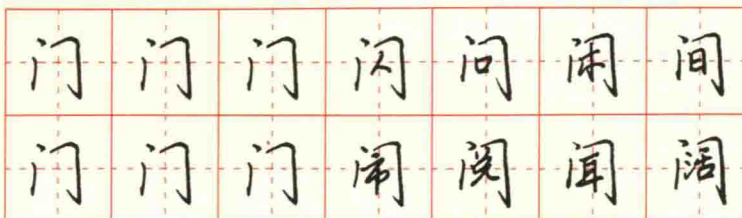 门门门闪问闲间
门门门闹阅闻阔